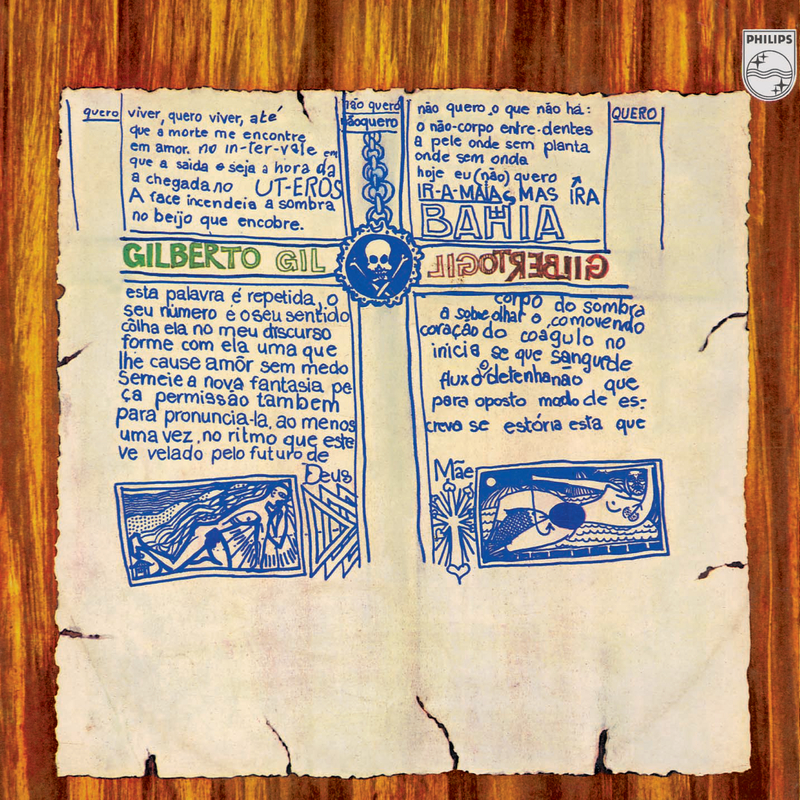 PHILIPS
quero
viver, quero viver, até
que a morte me encontre
em amor. no in-ter-vale em
que a saida e seja a hora da
a chegada no UT-EROS
A face incendeia a sombra
no beijo que encobre.
não quero
nãoquero
não quero o que não há:
o não-corpo entre-dentes
a pele onde sem planta
onde sem onda
hoje eu (não) quero
IR-A-MAIAS MAS IRA
BAHIA
QUERO
GILBERTO GIL
GILBERTO GIL
esta palavra é repetida, o
seu número é o seu sentido
côlha ela no meu discurso
forme com ela uma que
lhe cause amôr sem medo
Semeie a nova fantasia pe
ça permissão também
para pronuncia-la, ao menos
uma vez, no ritmo que este
ve velado pelo futuro de
Deus
corpo do sombra
a sobre olhar o, comovendo
coração do coagulo no
inicia se que sangue de
fluxo o detenha não que
para oposto modo de es-
crevo se estória esta que
Mãe